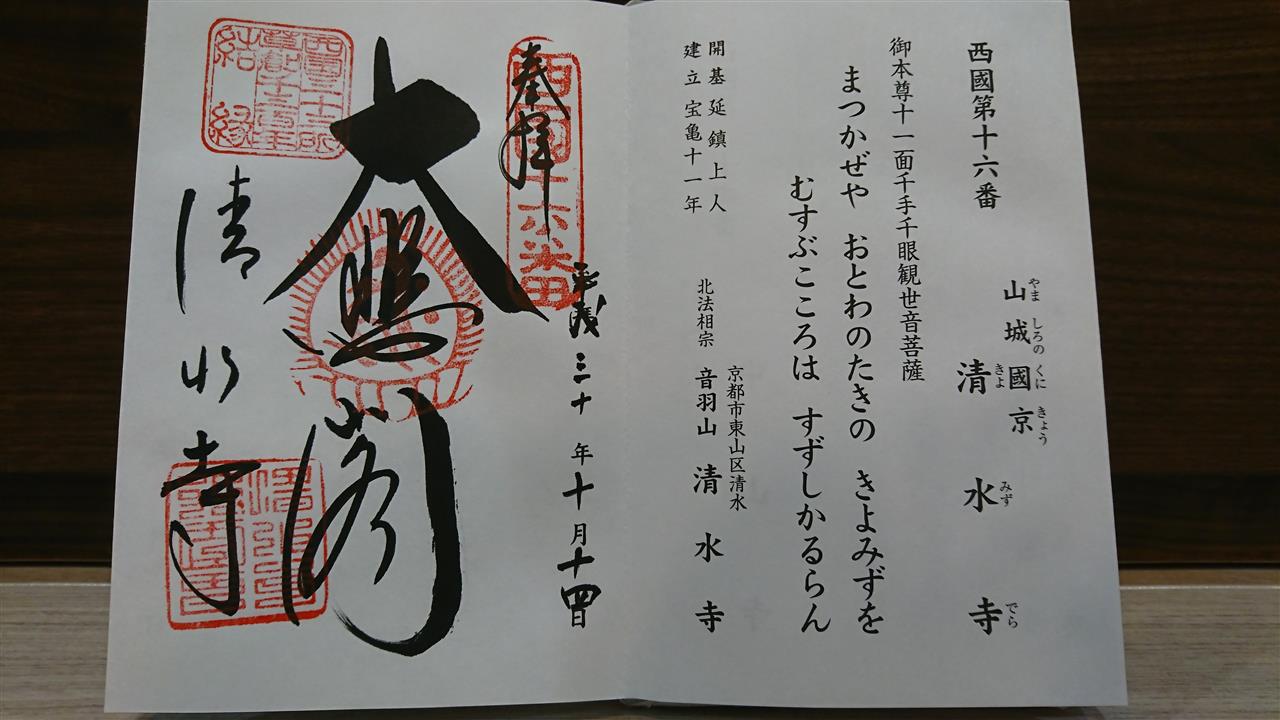 西國第十六番
山城國京
やましろのくにきょう
清水寺
きよみずでら
御本尊十一面千手千眼観世音菩薩
まつかぜや おとわのたきの きよみずを
むすぶこころは すずしかるらん
開基延鎮上人
建立宝亀十一年
京都市東山区清水
北法相宗 音羽山 清水寺
奉拝
西国十六番
平成三十年十月十四日
大悲閣
清水寺
西國三十三所
草創千三百年
結縁